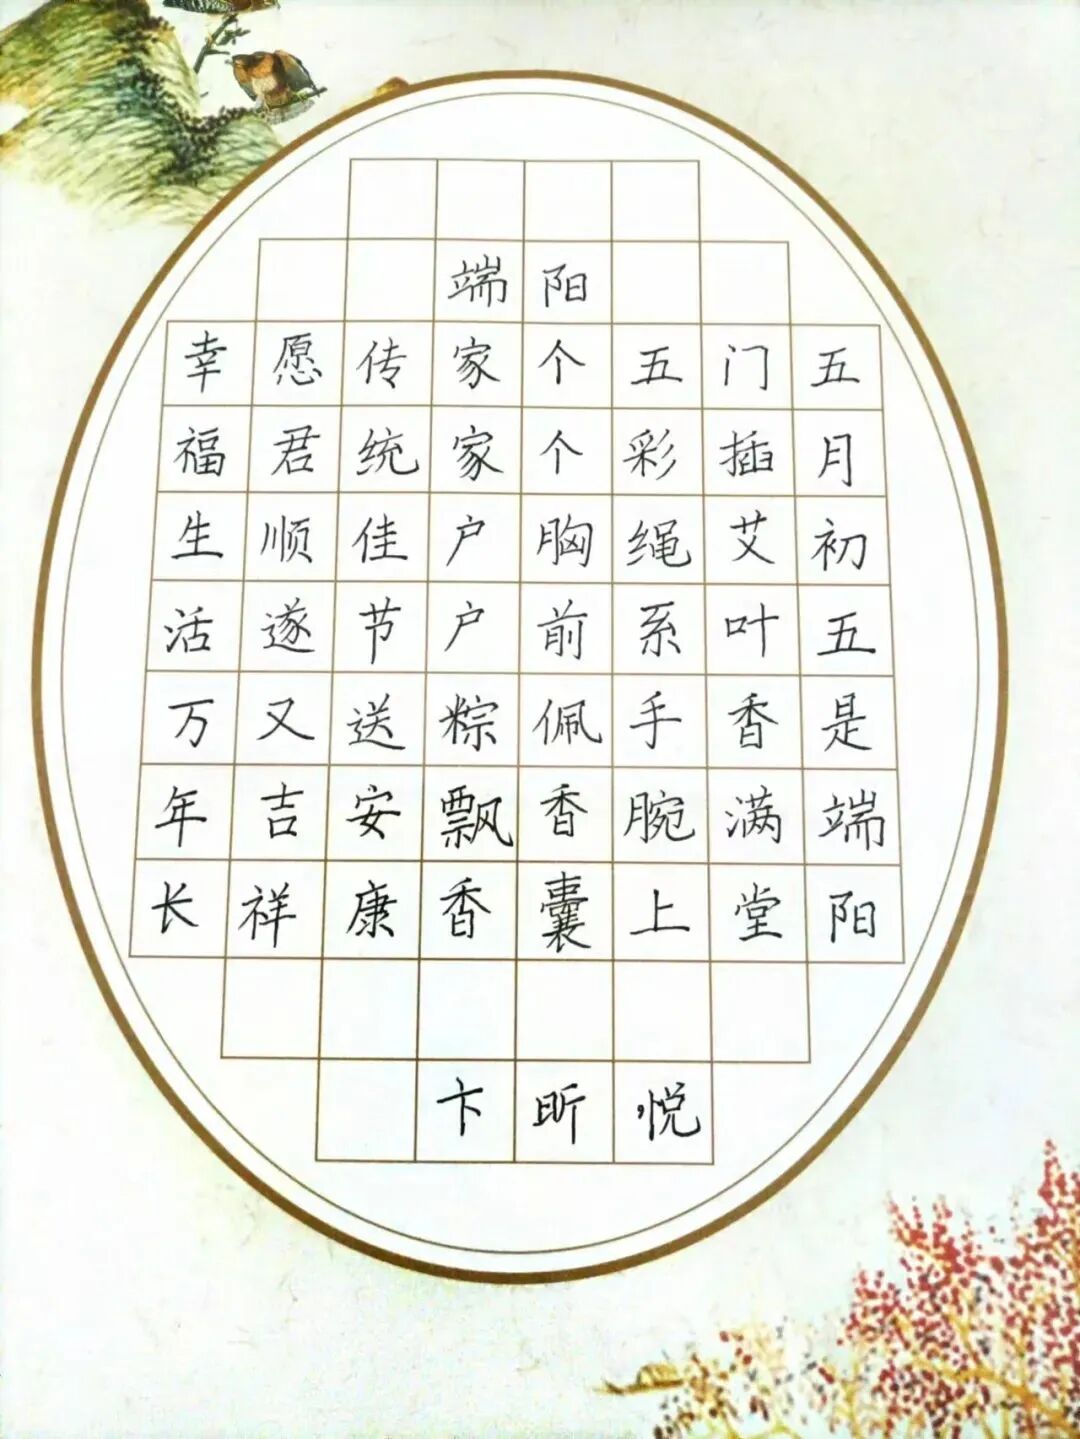 端阳
五月初五是端阳
门插艾叶香满堂
五彩绳系手腕上
个个胸前佩香囊
家家户户粽飘香
传统佳节送安康
愿君顺遂又吉祥
幸福生活万年长
卞昕悦